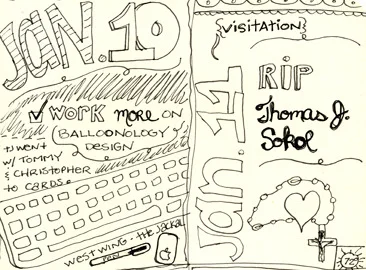 JAN. 10
WORK MORE ON
BALLOONOLOGY
DESIGN
WENT
W/ TOMMY
& CHRISTOPHER
to CARDS.
WEST WING · the JACKAL
{VISITATION}
Jan. 11
RIP
Thomas J.
Sokol